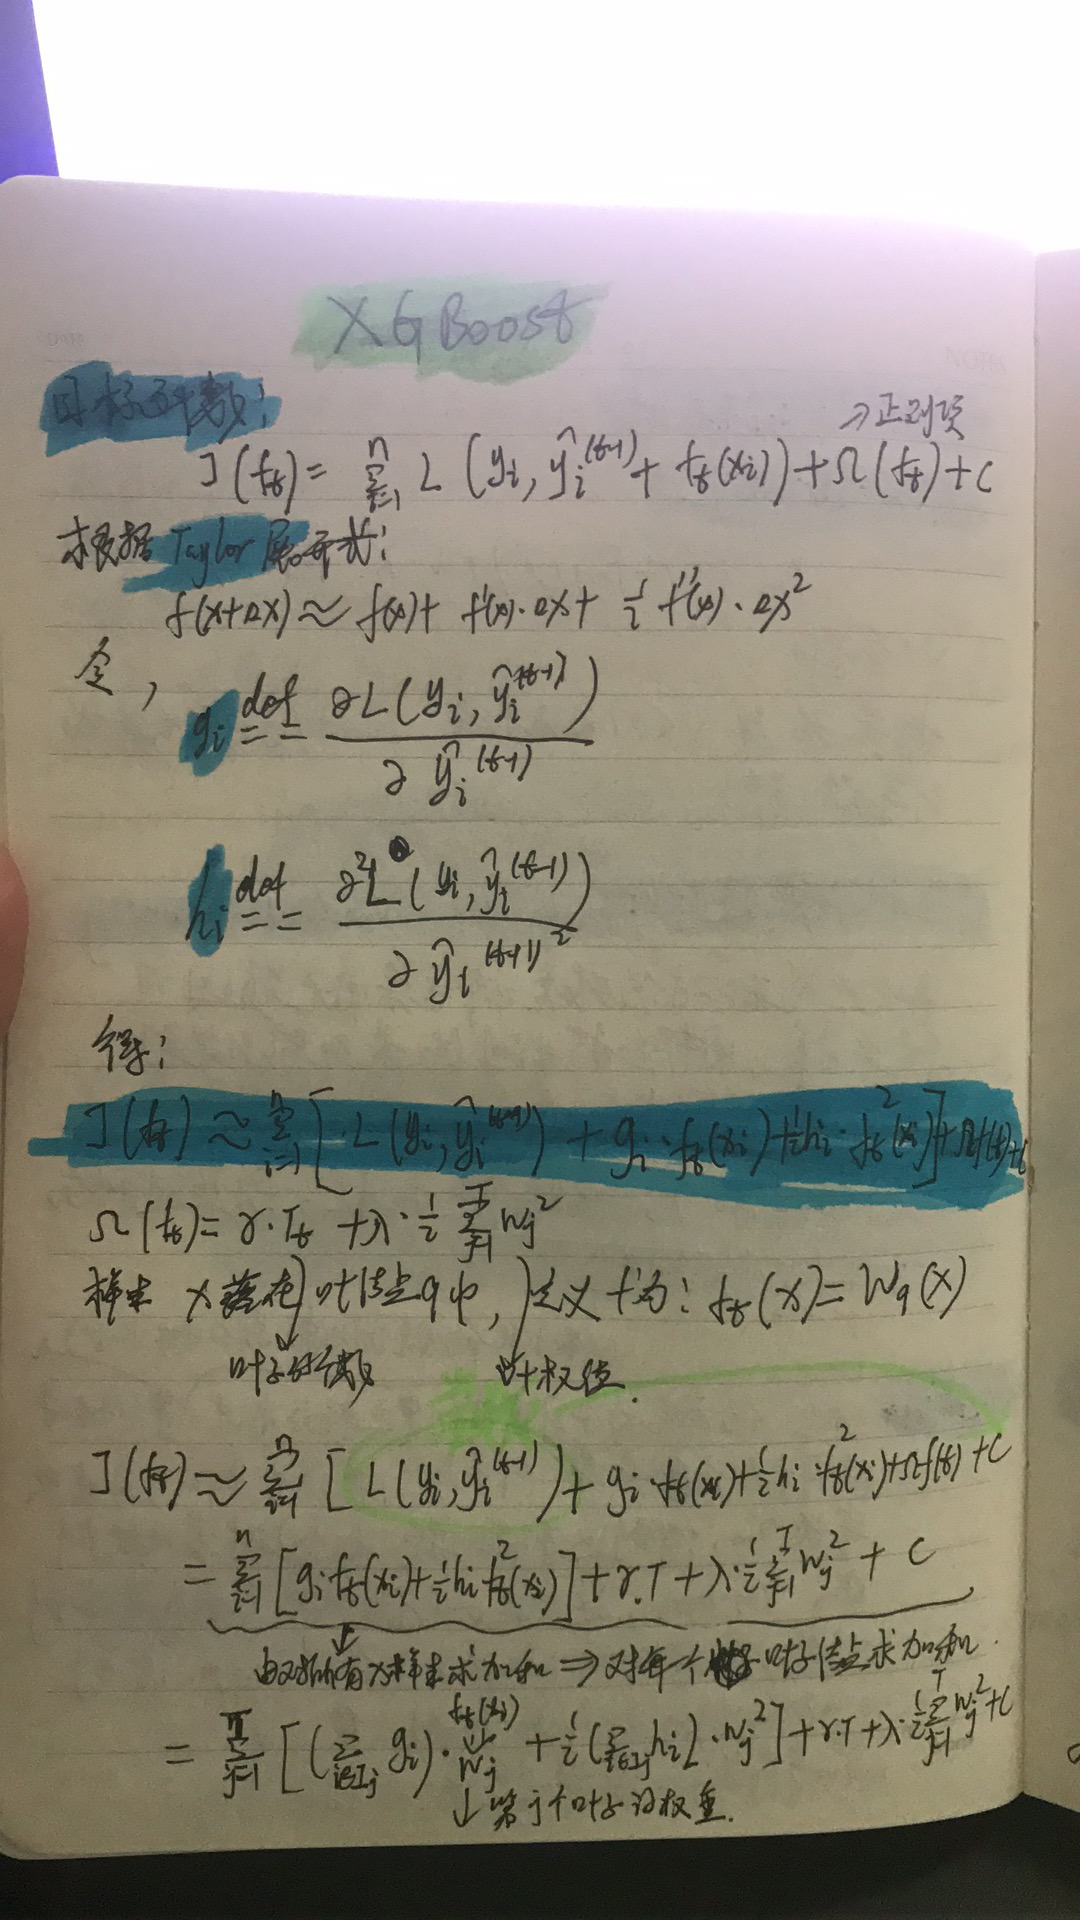 XGBoost
目标函数:
→正则项
J(fₜ) = Σⁿᵢ₌₁ L(yᵢ, ŷᵢ^(t-1) + fₜ(xᵢ)) + Ω(fₜ) + C
根据 Taylor 展开式:
f(x+Δx) ≈ f(x) + f'(x)·Δx + ½ f''(x)·Δx²
令,
gᵢ def== ∂L(yᵢ, ŷᵢ^(t-1)) / ∂ŷᵢ^(t-1)
hᵢ def== ∂²L(yᵢ, ŷᵢ^(t-1)) / ∂ŷᵢ^(t-1)²
得:
J(fₜ) ≈ Σⁿᵢ₌₁ [L(yᵢ, ŷᵢ^(t-1)) + gᵢ·fₜ(xᵢ) + ½hᵢ·fₜ²(xᵢ)] + Ωf(t) + C
Ω(fₜ) = γ·Tₜ + λ·½ Σᵀⱼ₌₁ wⱼ²
样本 x 落在叶结点q中, 定义f为: fₜ(x) = W_q(x)
叶子结数 叶权值.
J(fₜ) ≈ Σⁿᵢ₌₁ [L(yᵢ, ŷᵢ^(t-1)) + gᵢ·fₜ(xᵢ) + ½hᵢ·fₜ²(xᵢ) + Ωf(t) + C
= Σⁿᵢ₌₁ [gᵢfₜ(xᵢ) + ½hᵢfₜ²(xᵢ)] + γ.T + λ·½Σᵀⱼ₌₁ wⱼ² + C
由对所有x样本求加和 ⇒ 对每个叶子结点求加和.
fₜ(xᵢ)
= Σᵀⱼ₌₁ [(Σᵢ∈Iⱼ gᵢ)·wⱼ + ½(Σᵢ∈Iⱼ hᵢ)·wⱼ²] + γ.T + λ·½Σᵀⱼ₌₁ wⱼ² + C
↓第j个叶子的权重.